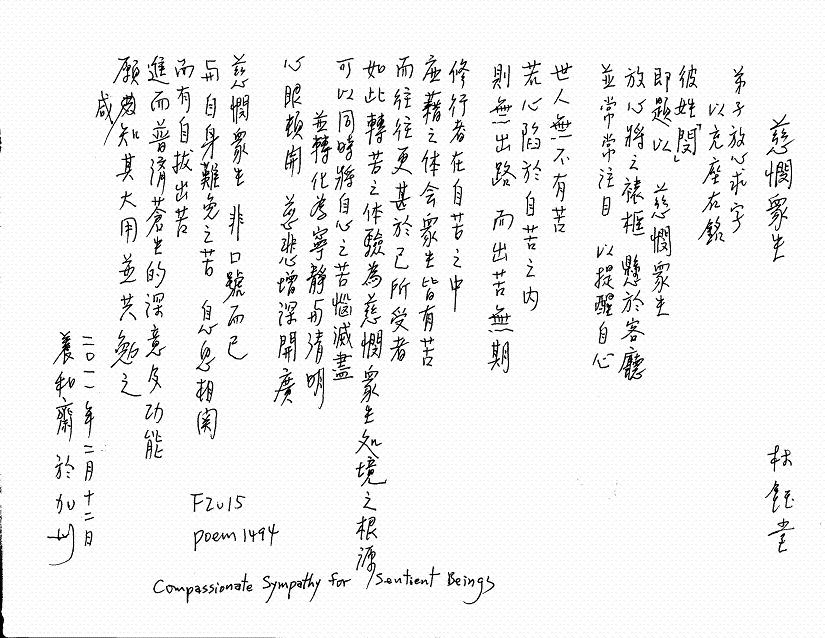 慈憫眾生
林鈺堂
弟子放心求字
以充座右銘
彼姓「閔」
即題以 慈憫眾生
放心將之裱框 懸於客廳
並常常注目 以提醒自心
世人無不有苦
若心陷於自苦之內
則無出路 而出苦無期
修行者在自苦之中
應藉之体会眾生皆有苦
而往往更甚於己所受者
如此轉苦之体驗為慈憫眾生処境之根源
可以同時將自心之苦惱減盡
並轉化為寧靜與清明
心眼頓開 慈悲增深開廣
慈憫眾生 非口號而已
與自身難免之苦 息息相関
而有自拔出苦
進而普濟蒼生的深意及功能
願咸知其大用並共勉之
二〇一一年二月十二日
養和齋 於加州
F2015
poem 1494
Compassionate Sympathy for Sentient Beings